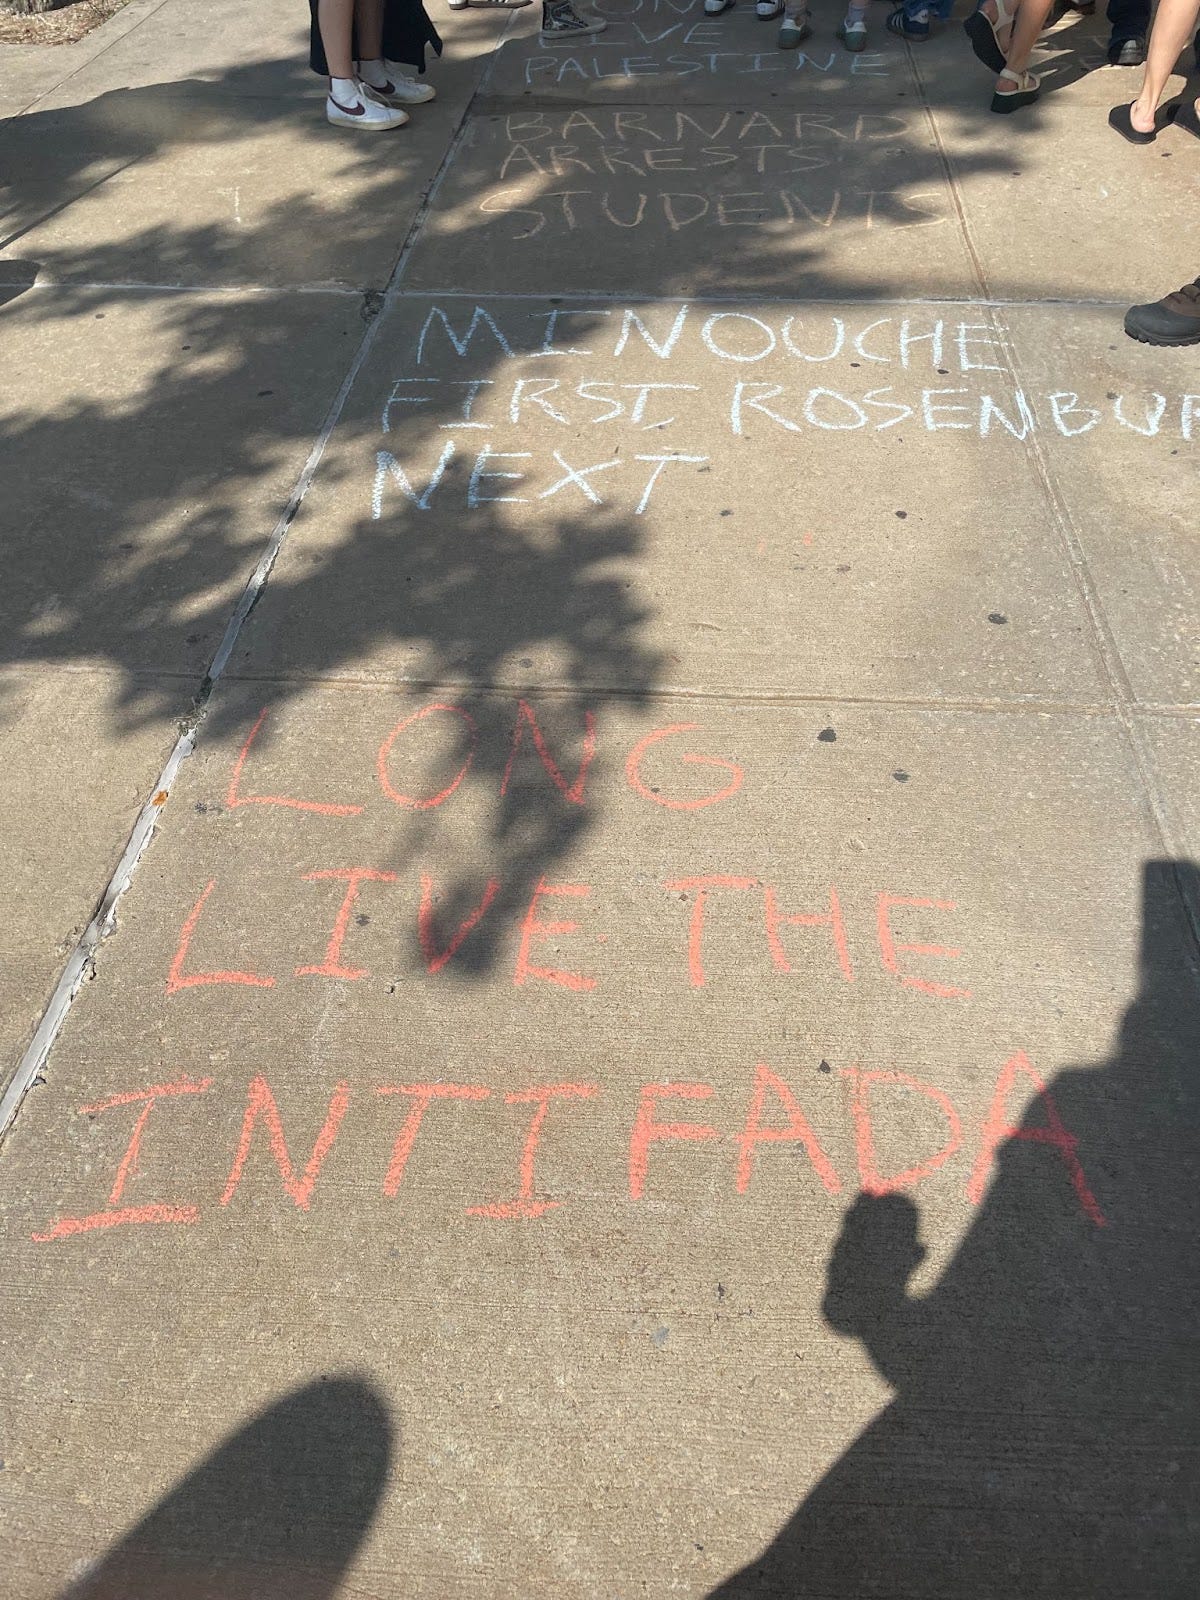 LONG
LIVE
PALESTINE
BARNARD
ARRESTS
STUDENTS
MINOUCHE
FIRST, ROSENBUR
NEXT
LONG
LIVE THE
INTIFADA